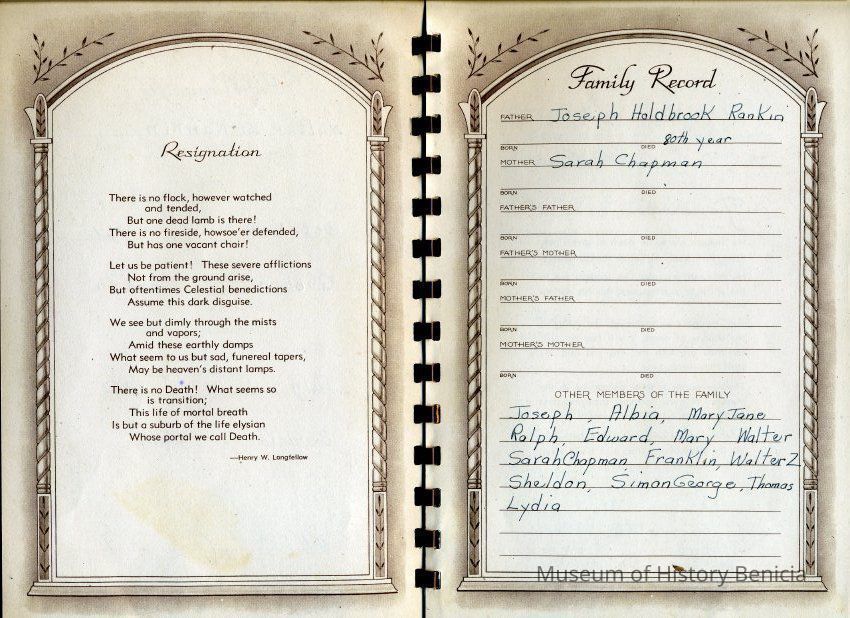 Resignation
There is no flock, however watched
and tended,
But one dead lamb is there!
There is no fireside, howsoe'er defended,
But has one vacant chair!
Let us be patient! These severe afflictions
Not from the ground arise,
But oftentimes Celestial benedictions
Assume this dark disguise.
We see but dimly through the mists
and vapors;
Amid these earthly damps
What seem to us but sad, funereal tapers,
May be heaven's distant lamps.
There is no Death! What seems so
is transition;
This life of mortal breath
Is but a suburb of the life elysian
Whose portal we call Death.
—Henry W. Longfellow
Family Record
FATHER Joseph Holdbrook Rankin
80th year
BORN DIED
MOTHER Sarah Chapman
BORN DIED
FATHER'S FATHER
BORN DIED
FATHER'S MOTHER
BORN DIED
MOTHER'S FATHER
BORN DIED
MOTHER'S MOTHER
BORN DIED
OTHER MEMBERS OF THE FAMILY
Joseph, Albia, Mary Jane
Ralph, Edward, Mary Walter
Sarah Chapman, Franklin, Walter Z
Sheldon, Simon George, Thomas
Lydia
Museum of History Benicia